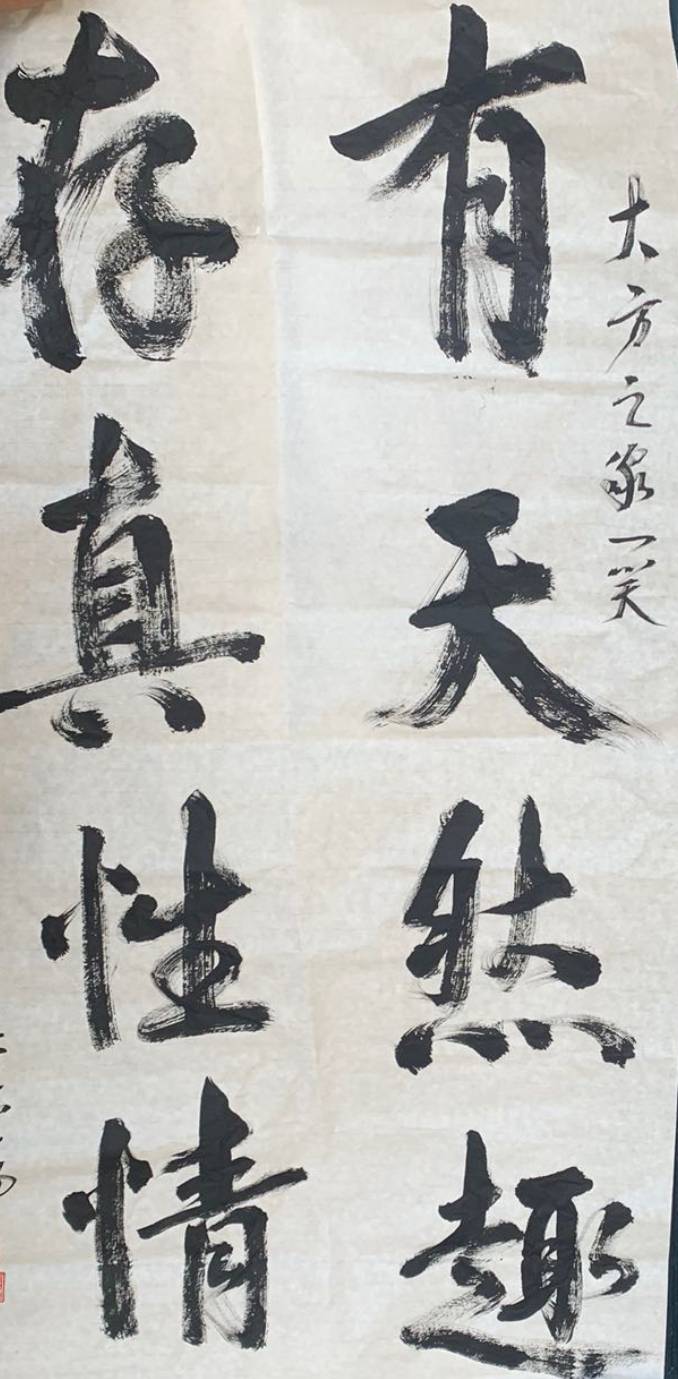 大方之家一笑
有天然趣
存真性情